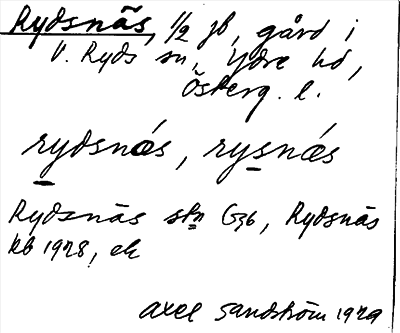 Rydsnäs, 1/2 jb, gård i
V. Ryds sn, Ydre hd,
Österg. l.
rydsnǽs, rysnǽs
Rydsnäs stn G36, Rydsnäs
kb 1928, ek
Axel Sandström 1929